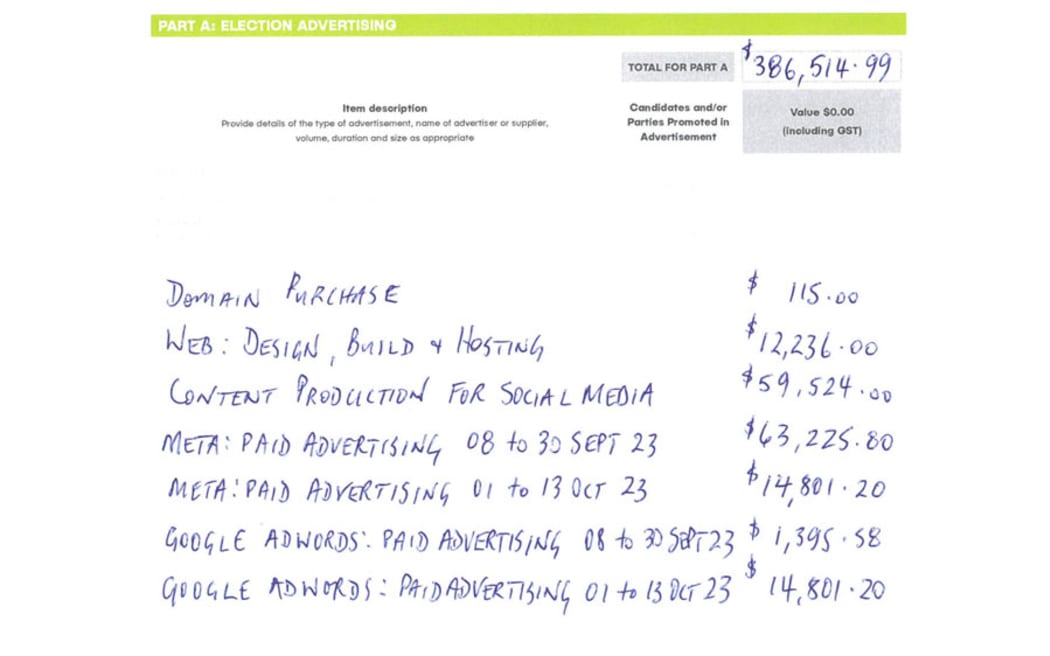 PART A: ELECTION ADVERTISING
TOTAL FOR PART A $386,514.99
Item description
Provide details of the type of advertisement, name of advertiser or supplier,
volume, duration and size as appropriate
Candidates and/or
Parties Promoted in
Advertisement
Value $0.00
(including GST)
DOMAIN PURCHASE $ 115.00
WEB: DESIGN, BUILD & HOSTING $12,236.00
CONTENT PRODUCTION FOR SOCIAL MEDIA $59,524.00
META: PAID ADVERTISING 08 to 30 SEPT 23 $63,225.80
META: PAID ADVERTISING 01 to 13 OCT 23 $14,801.20
GOOGLE ADWORDS: PAID ADVERTISING 08 to 30 SEPT 23 $ 1,395.58
GOOGLE ADWORDS: PAID ADVERTISING 01 to 13 OCT 23 $ 14,801.20